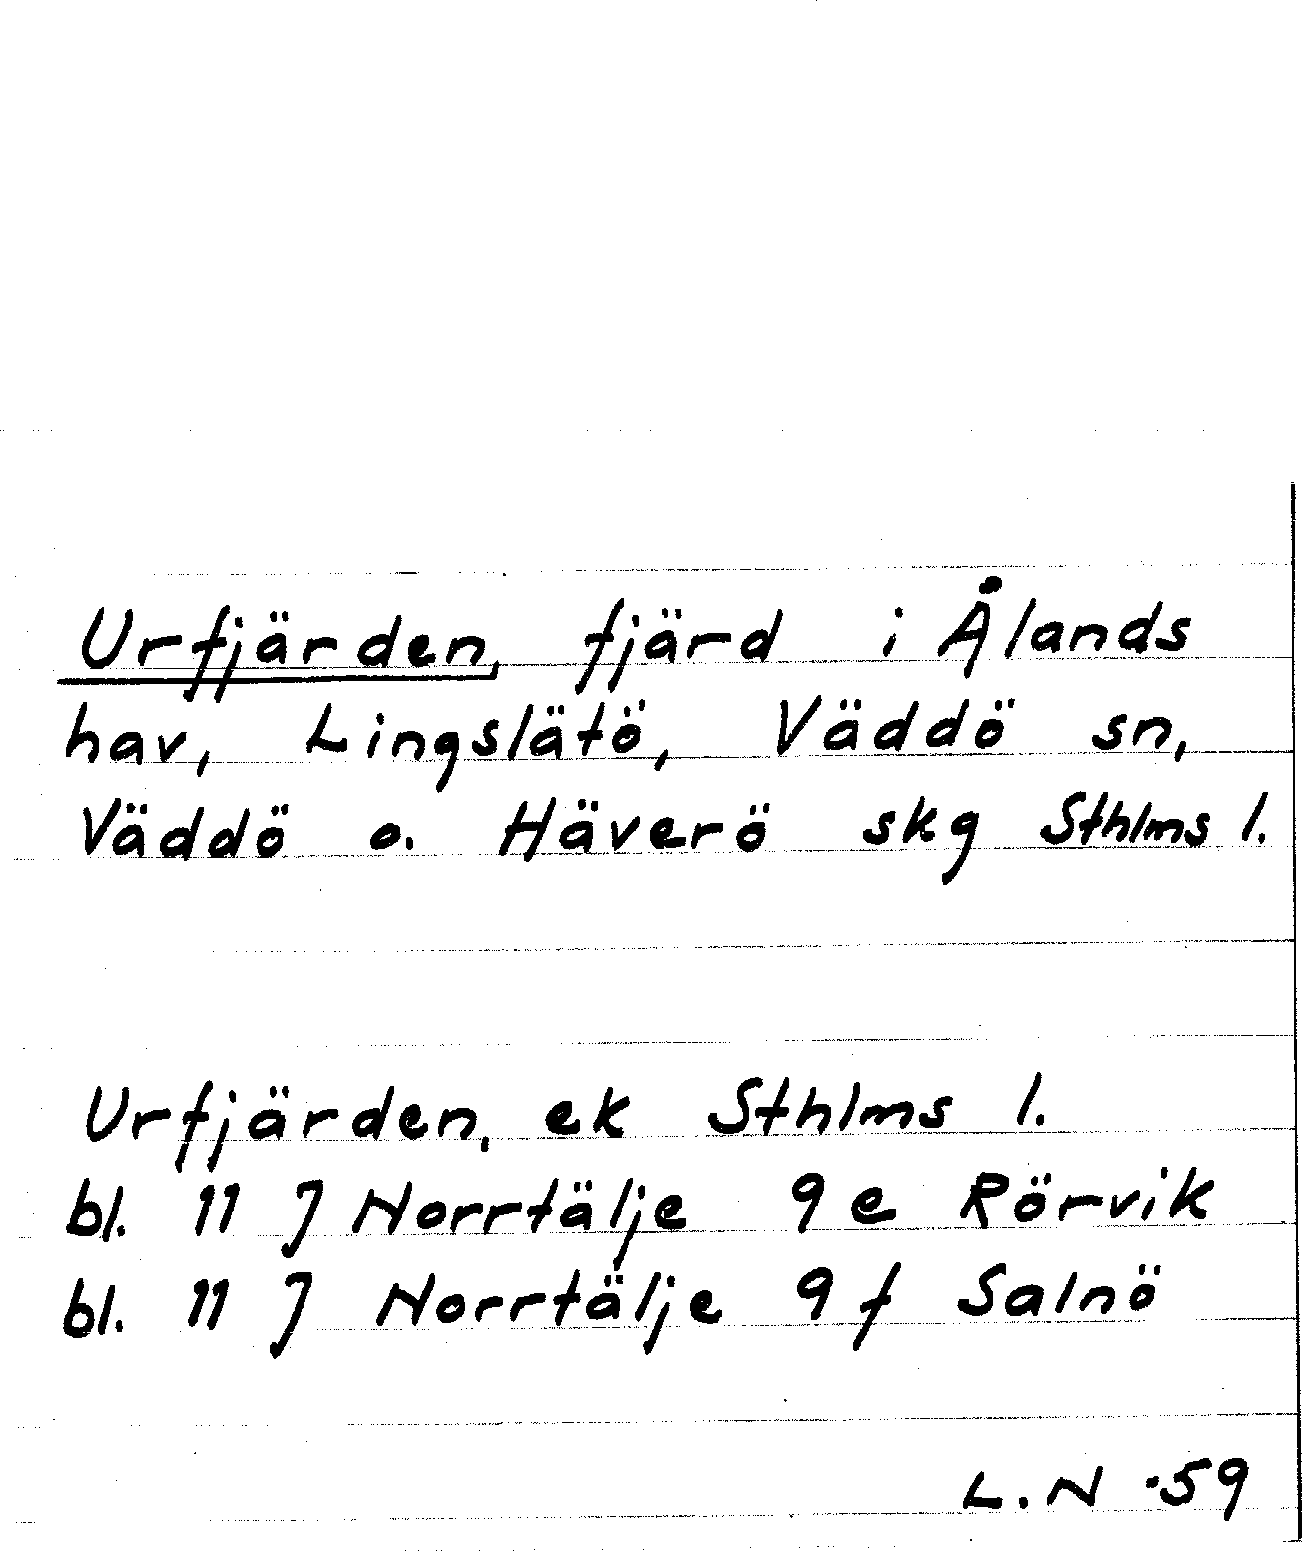 Urfjärden, fjärd i Ålands
hav, Lingslätö, Väddö sn,
Väddö o. Häverö skg Sthlms l.
Urfjärden, ek Sthlms l.
bl. 11 J Norrtälje 9 e Rörvik
bl. 11 J Norrtälje 9 f Salnö
L.N ·59